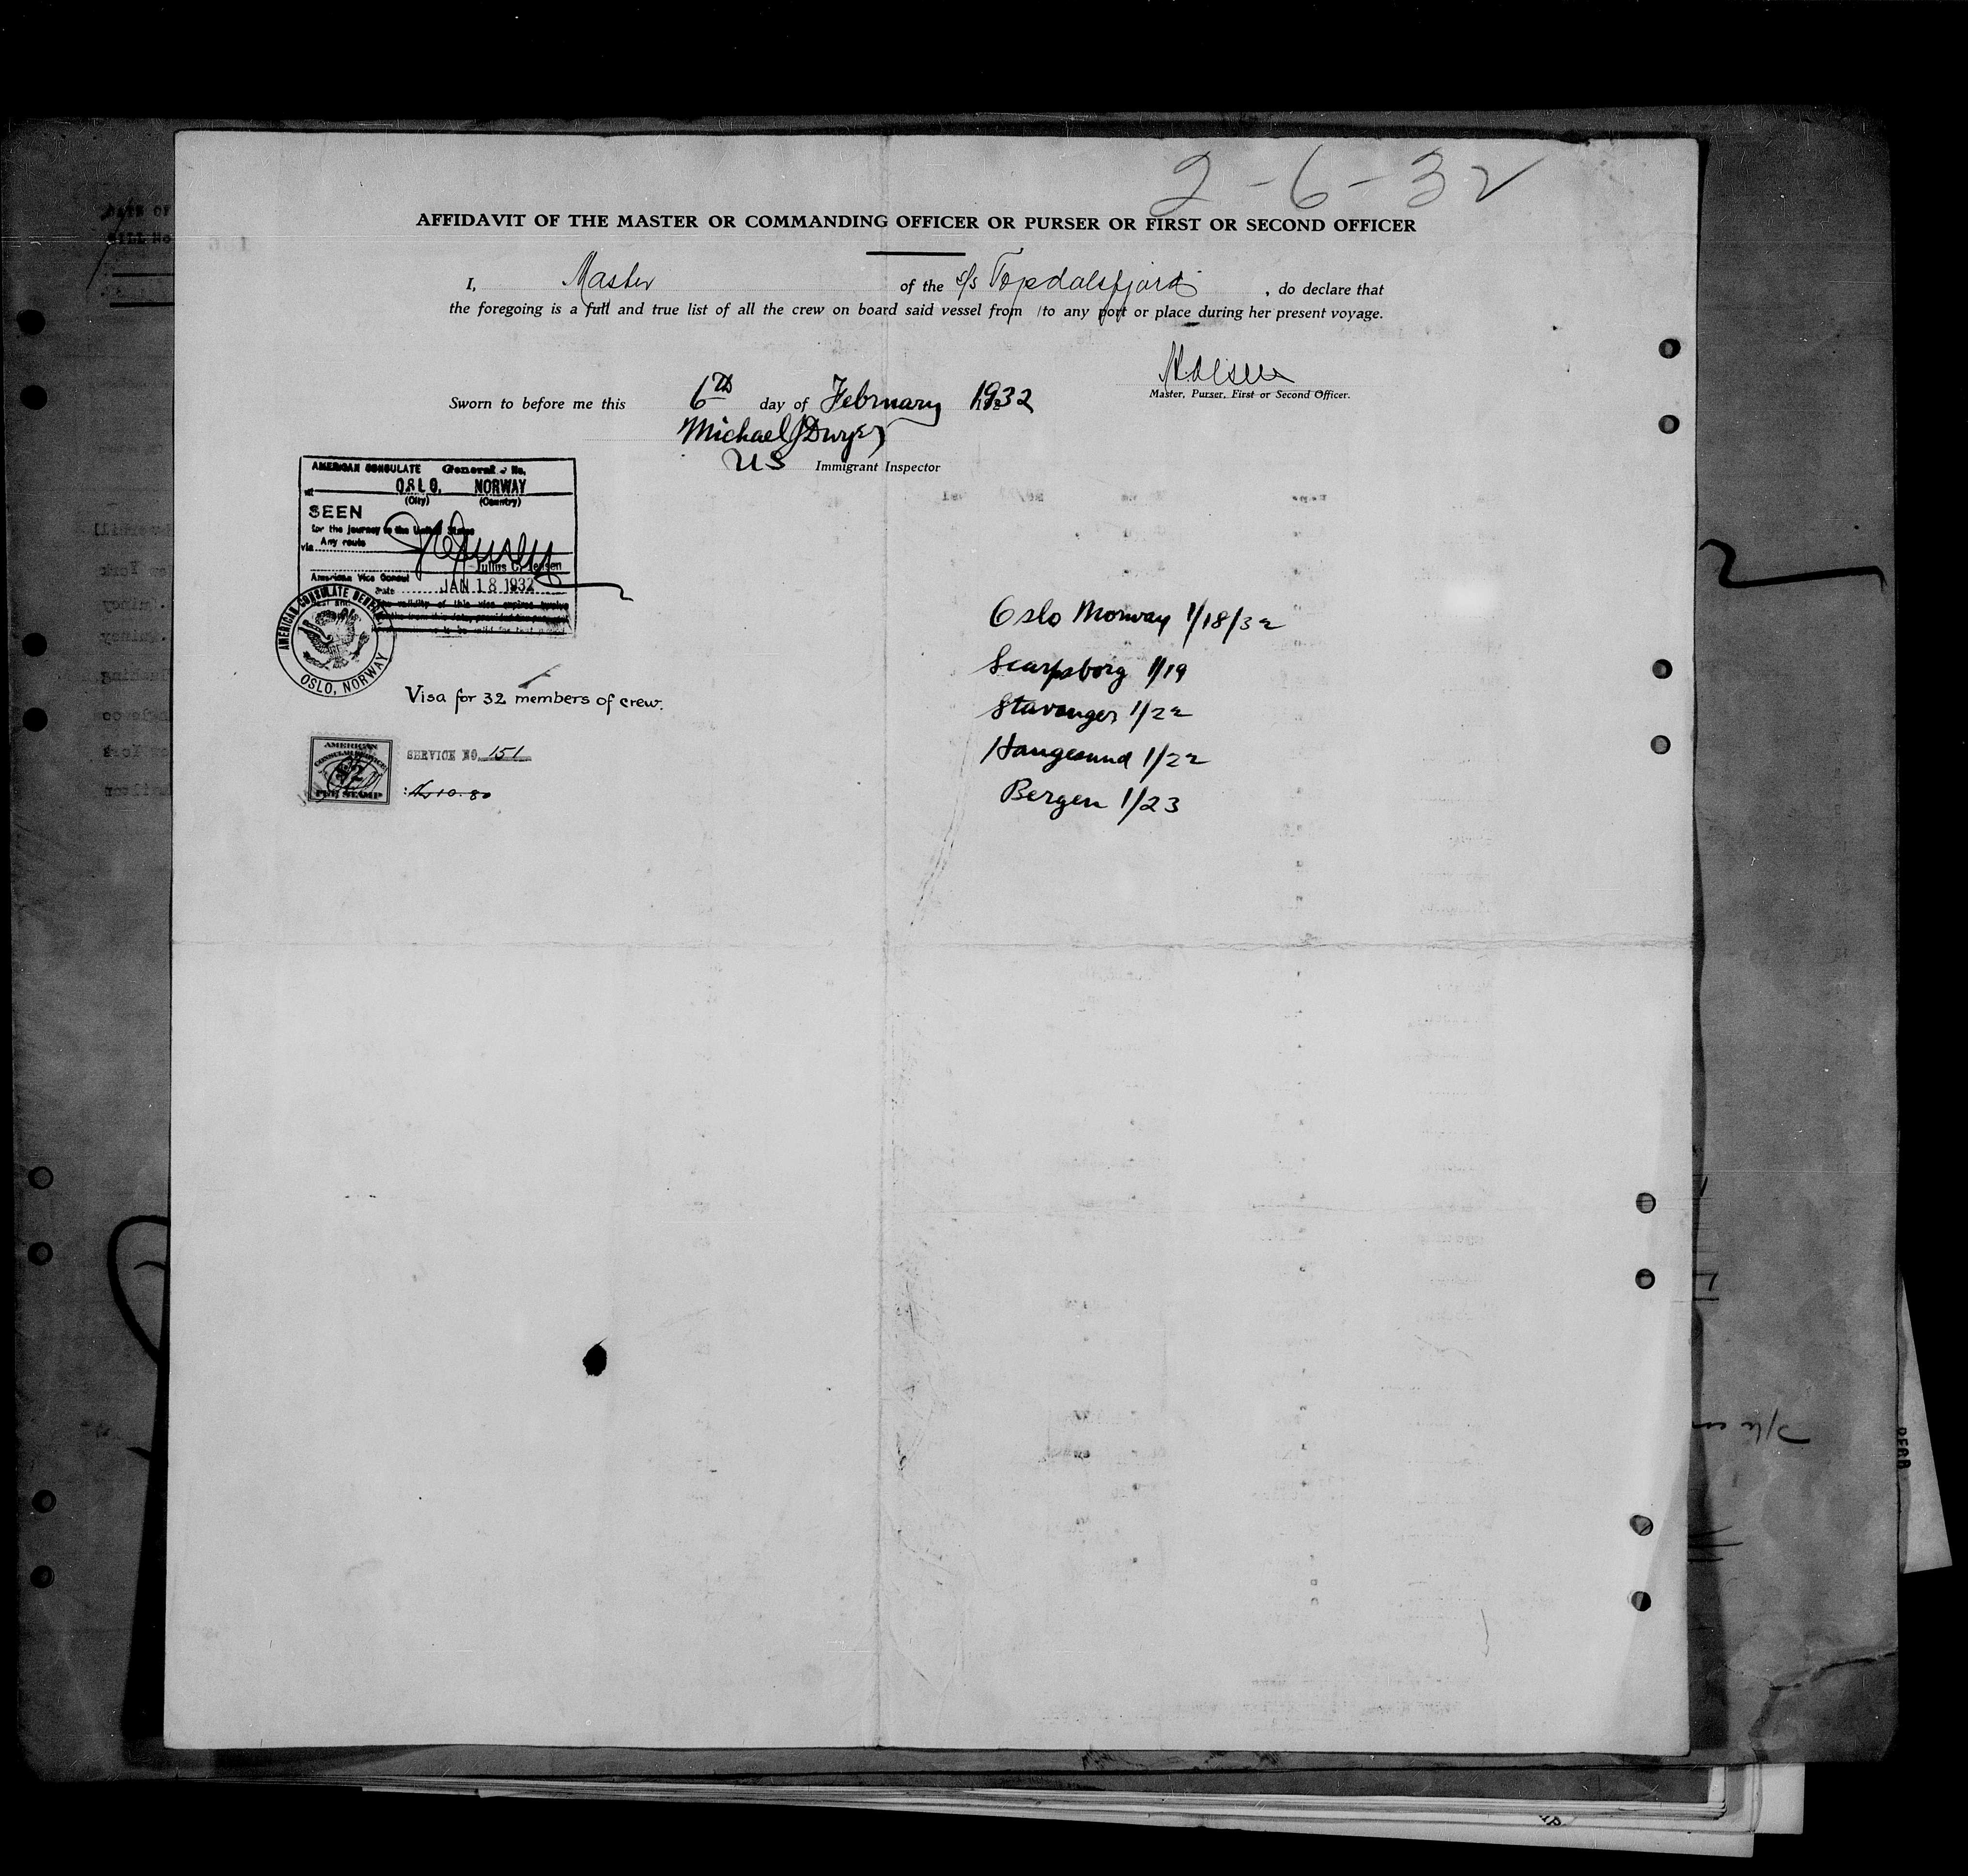 2-6-32
AFFIDAVIT OF THE MASTER OR COMMANDING OFFICER OR PURSER OR FIRST OR SECOND OFFICER
I, Master of the s/s Topdalsfjord, do declare that
the foregoing is a full and true list of all the crew on board said vessel from / to any port or place during her present voyage.
Master, Purser, First or Second Officer.
Sworn to before me this 6th day of February 1932
Michael J Dwyer
US Immigrant Inspector
AMERICAN CONSULATE General No.
at OSLO, NORWAY
(City) (Country)
SEEN
for the journey to the United States
via Any route
Julius C. Jensen
American Vice Consul
Date JAN 18 1932
AMERICAN CONSULATE GENERAL
OSLO, NORWAY
Visa for 32 members of crew.
AMERICAN
CONSULAR SERVICE
$2
FEE STAMP
SERVICE NO. 151
10.80
Oslo Norway 1/18/32
Scarpsborg 1/19
Stavanger 1/22
Haugesund 1/22
Bergen 1/23